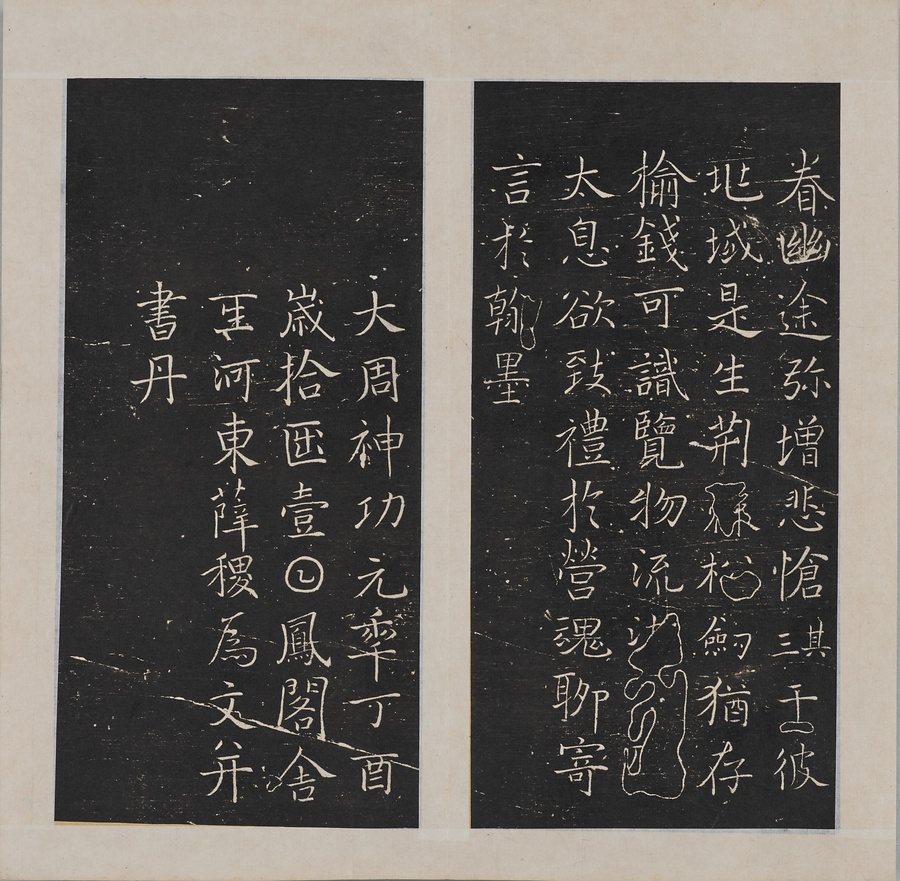 眷幽途弥增悲愴其三于彼
域是生荆棘松劒猶存
榆錢可識覽物流
太息欲致禮於營魂聊寄
言於翰墨
大周神功元𠡦丁酉
歲拾𠥱壹𡆠鳳閣舍
𤯔河東薛稷爲文并
書丹